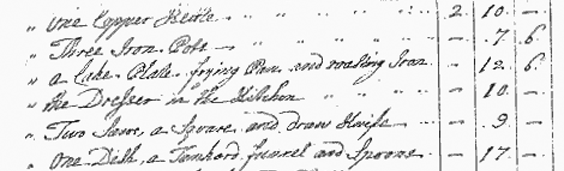 " One Copper Kettle " " " " 2 10 –
" Three Iron Pots – " " " " – 7 6
" a Cake Plate, frying Pan and roasting Iron – 12 6
" the Dresser in the Kitchen " " " – 10 –
" Two Saws, a Square and draw Knife – – 9 –
" One Dish, a Tankard funnel and Spoons – 17 –